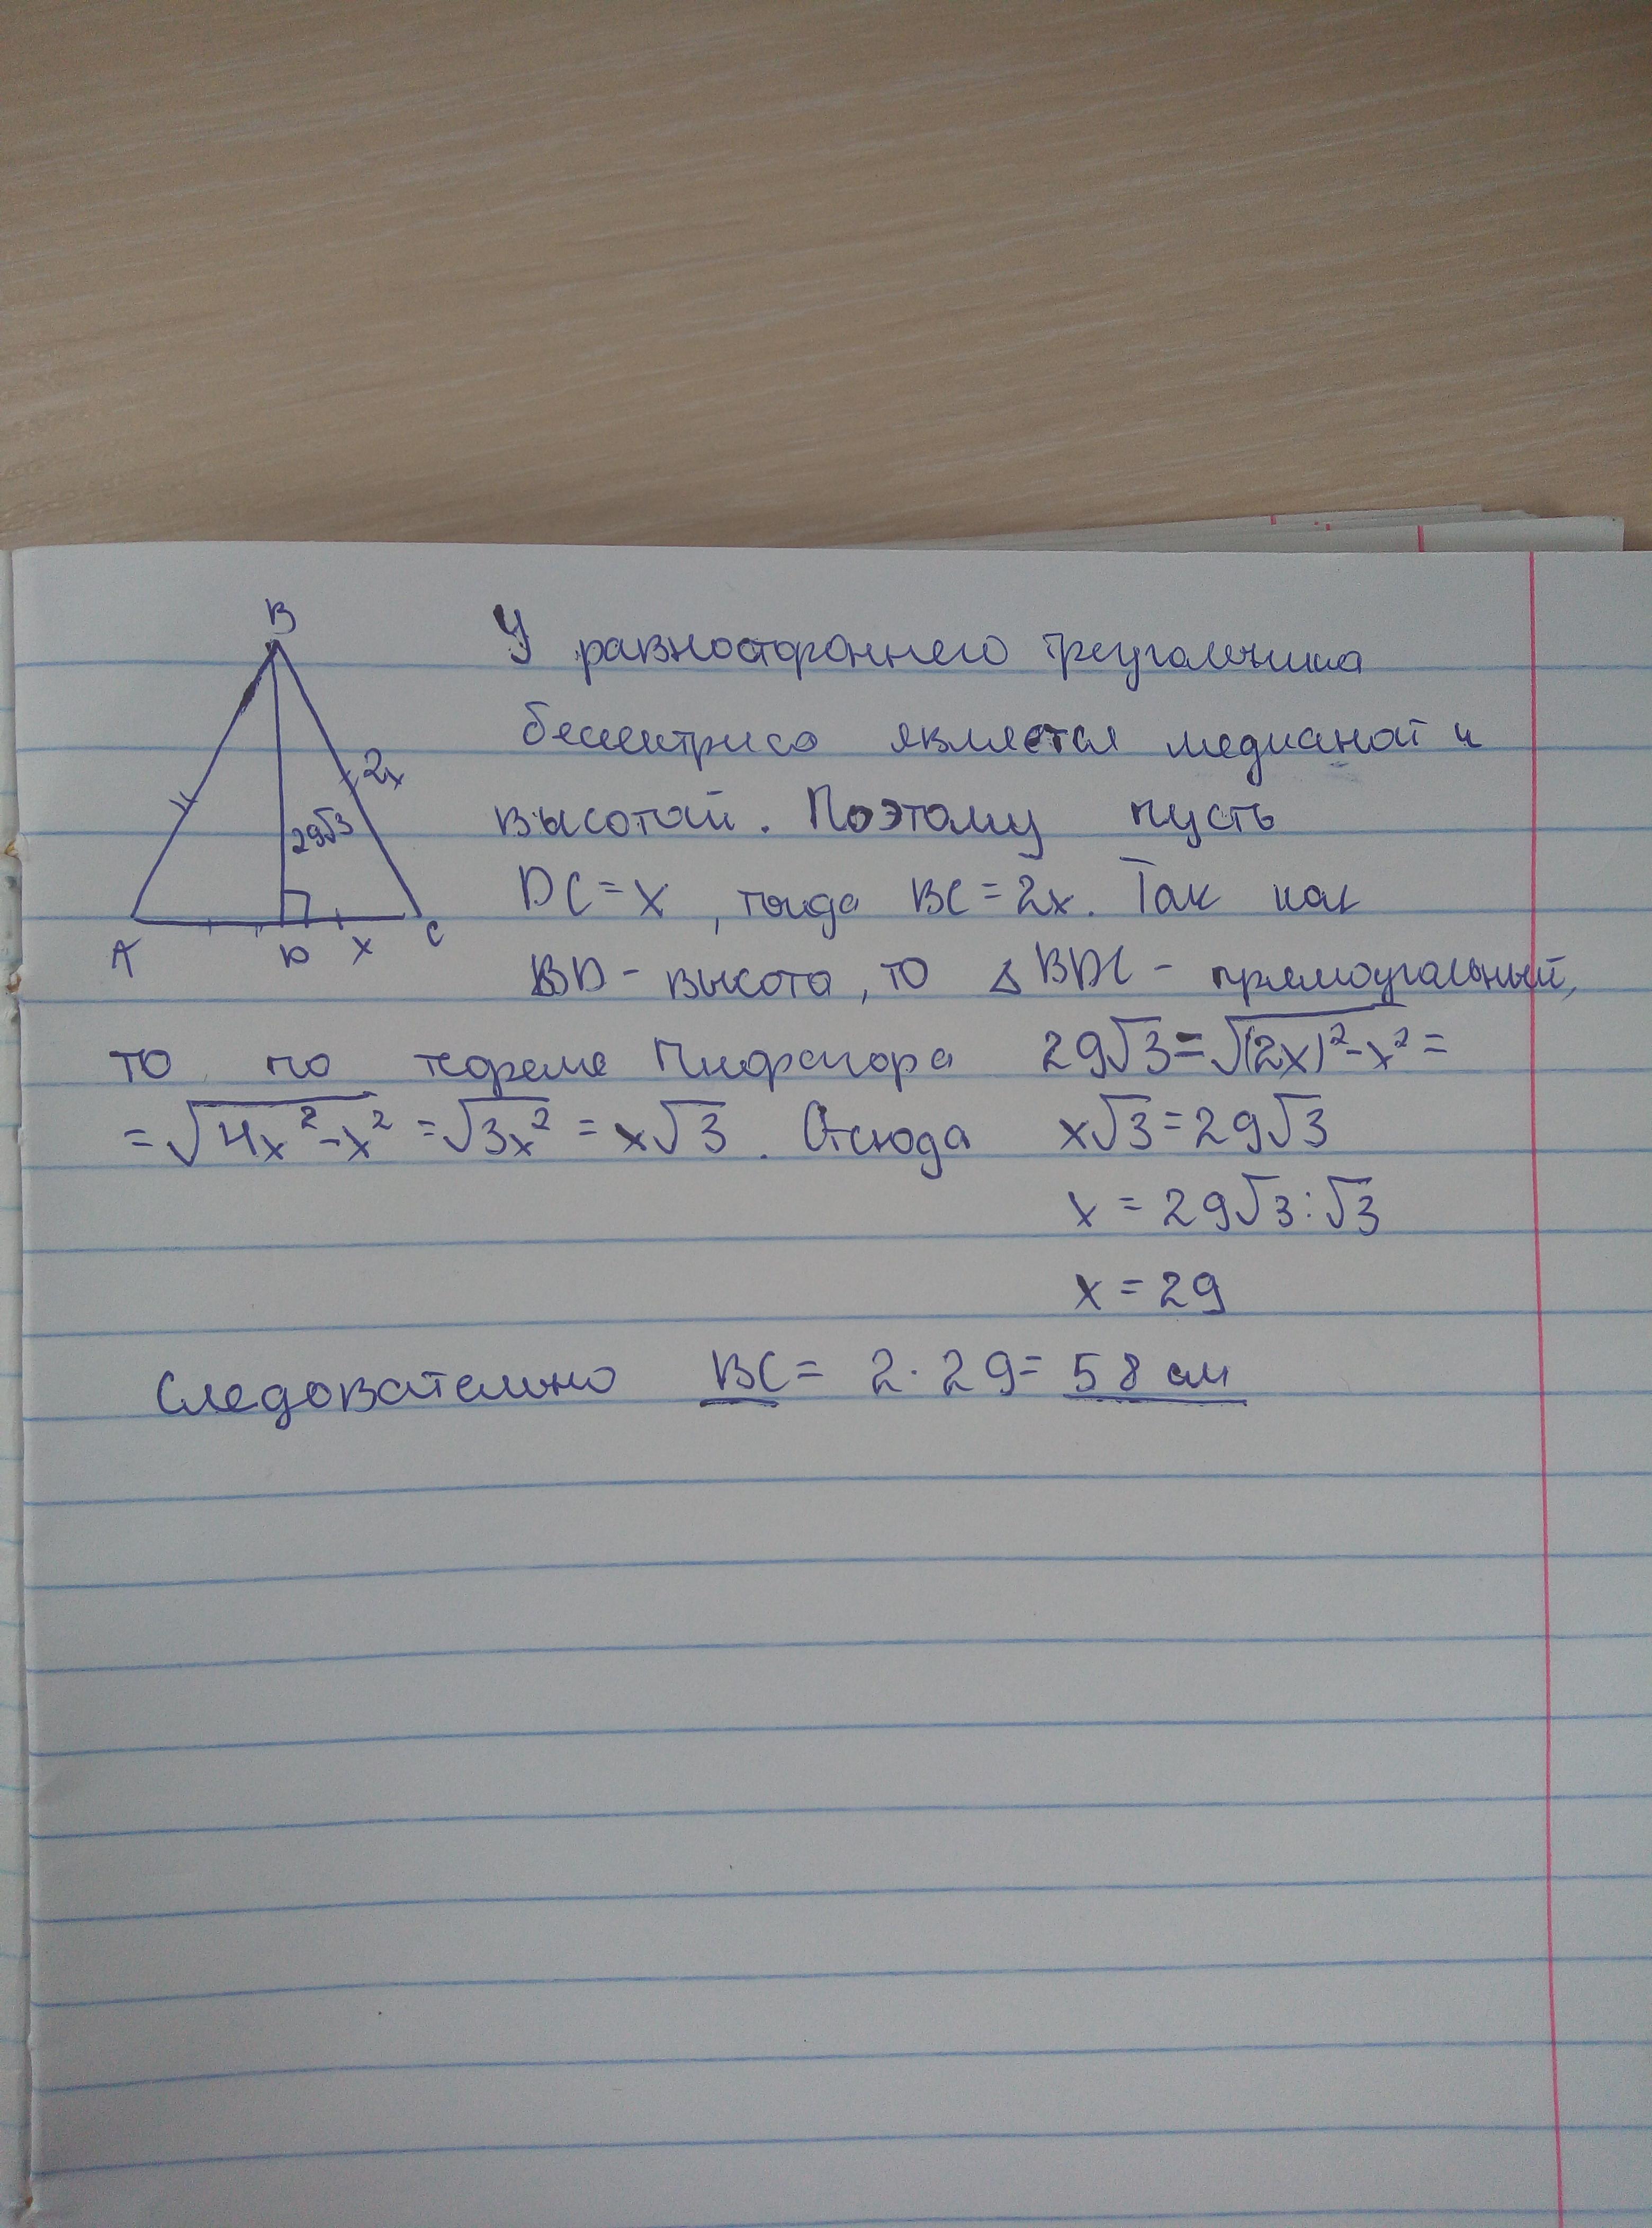 B
У равностороннего треугольника
бесектриса является медианой и
2x
высотой. Поэтому пусть
29√3
DC = x, тогда BC = 2x. Так как
A D x C
BD - высота, то △BDC - прямоугольный,
то по теореме Пифагора 29√3 = √(2x)²-x² =
= √4x²-x² = √3x² = x√3. Отсюда x√3 = 29√3
x = 29√3 : √3
x = 29
Следовательно BC = 2·29 = 58 см